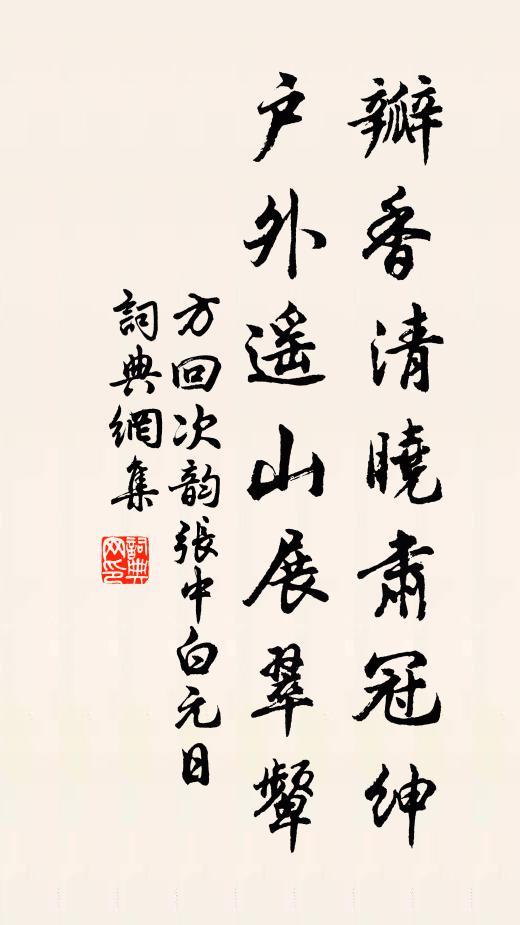 瓣香清曉肅冠紳
户外遥山展翠顰
方回次韵張中白元日
詞典網集
詞典网印